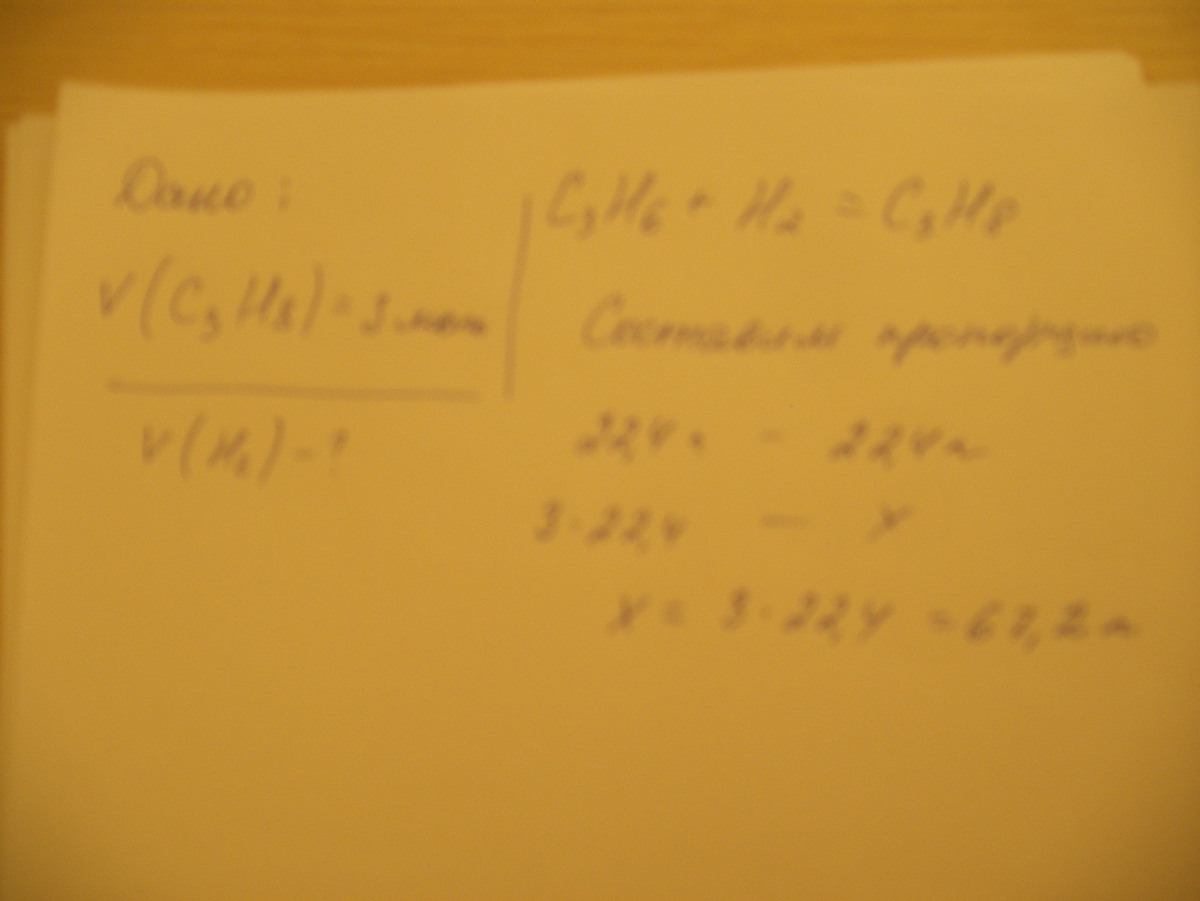 Дано:
V(C₃H₈) = 3 моль
V(H₂) - ?
C₃H₆ + H₂ = C₃H₈
Составим пропорцию
22,4 л - 22,4 л
3·22,4 — x
x = 3·22,4 = 67,2 л